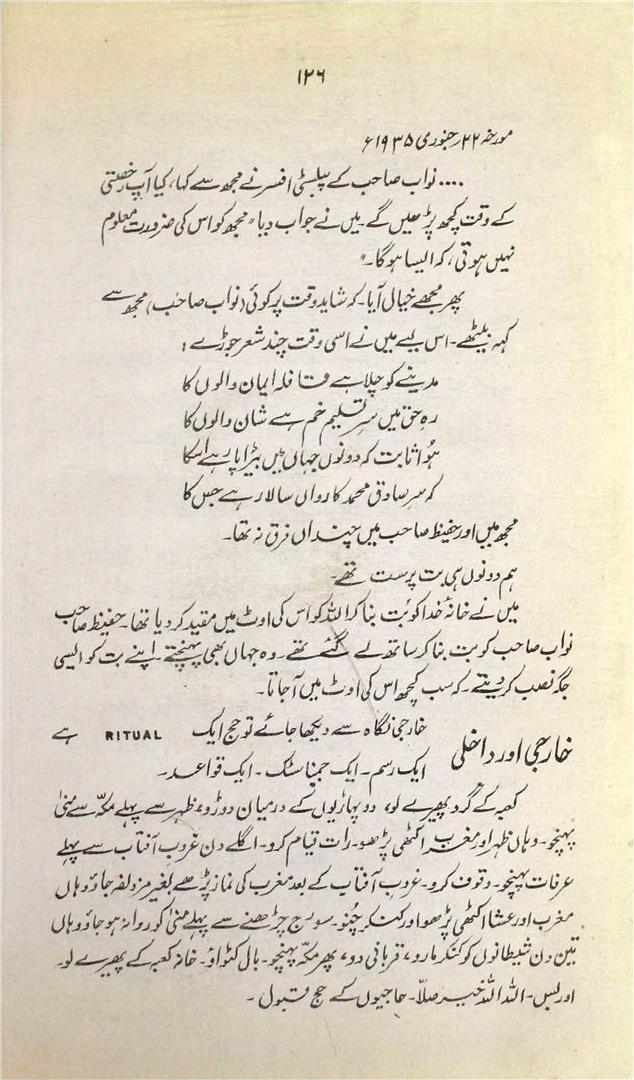 ۱۲۶
مورخہ ۲۲ر جنوری ۱۹۳۵ء
.... نواب صاحب کے پبلسٹی افسر نے مجھ سے کہا، کیا آپ رخصتی
کے وقت کچھ پڑھیں گے۔ میں نے جواب دیا " مجھ کو اس کی ضرورت معلوم
نہیں ہوتی، کہ ایسا ہوگا۔"
پھر مجھے خیال آیا۔ کہ شاید وقت پر کوئی (نواب صاحب) مجھ سے
کہہ بیٹھے۔ اس لیے میں نے اسی وقت چند شعر جوڑے :
مدینے کو چلا ہے قافلہ ایمان والوں کا
رہِ حق میں سرِ تسلیم خم ہے شان والوں کا
ہُوا ثابت کہ دونوں جہاں میں بیڑا پار ہے اسکا
کہ سر صادق محمد کارواں سالار ہے جس کا
مجھ میں اور حفیظ صاحب میں چنداں فرق نہ تھا۔
ہم دونوں ہی بت پرست تھے۔
میں نے خانۂ خدا کو بُت بنا کر اللہ کو اس کی اوٹ میں مقید کر دیا تھا۔ حفیظ صاحب
نواب صاحب کو بت بنا کر ساتھ لے گئے تھے۔ وہ جہاں بھی پہنچتے۔ اپنے بت کو ایسی
جگہ نصب کر دیتے۔ کہ سب کچھ اس کی اوٹ میں آ جاتا۔
خارجی اور داخلی
خارجی نگاہ سے دیکھا جائے تو حج ایک RITUAL ہے
ایک رسم۔ ایک جمناسٹک۔ ایک قواعد۔
کعبہ کے گرد پھیرے لو، دو پہاڑیوں کے درمیان دوڑو، ظہر سے پہلے مکّہ سے منیٰ
پہنچو۔ وہاں ظہر اور مغرب اکٹھی پڑھو۔ رات قیام کرو۔ اگلے دن غروب آفتاب سے پہلے
عرفات پہنچو۔ وقوف کرو۔ غروب آفتاب کے بعد مغرب کی نماز پڑھے بغیر مزدلفہ جاؤ وہاں
مغرب اور عشا اکٹھی پڑھو اور کنکر چُنو۔ سورج چڑھنے سے پہلے منیٰ کو روانہ ہو جاؤ وہاں
تین دن شیطانوں کو کنکر مارو، قربانی دو، پھر مکّہ پہنچو۔ بال کٹواؤ۔ خانہ کعبہ کے پھیرے لو۔
اور بس۔ اللہ اللہ خیر صلّا۔ حاجیوں کے حج قبول۔